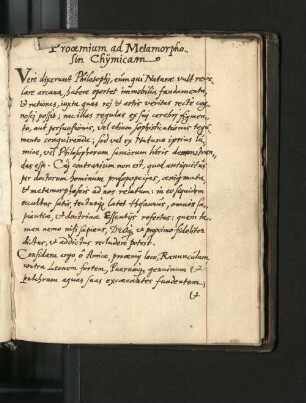 Prooemium ad Metamorpho-
sin Chÿmicam
Vere dixerunt Philosophj, eum qui Naturæ vult reve-
lare arcana, habere oportet immobilia fundamenta,
& rationes, juxta quas rej & artis veritas recte cog-
noscj possit: nec illas regulas ex suj cerebrj figmen-
to, aut persuasionis, vel etiam sophisticationis tegu-
mento conquirendas; sed vel ex Naturæ ipsius lu-
mine, vel Philosophorum seniorum libris deman-
das esse. Cuj contrarium non est, quod antiquitus
per doctorum hominum prosopopoejas, ænigmata,
& metamorphoseis ad nos relatum: in eo siquidem
occultus satis, tectusque latet thesaurus, omnis sa-
pientiæ, & doctrinæ Essentijs refertus: quem ta-
men nemo nisi sapiens, Deo, & proximo fideliter
dictus, & addictus recludere poterit.
Considera ergo ô Amice, prooemij loco, Ranunculam
contra Leonem fortem, Puerum, geminum &
pulchrum aquas suas exæcantes fundentem,
&